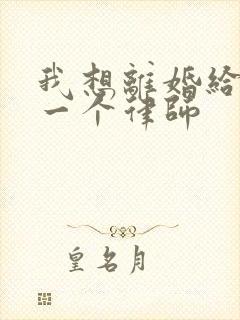 我想離婚給
一个律師
皇名月